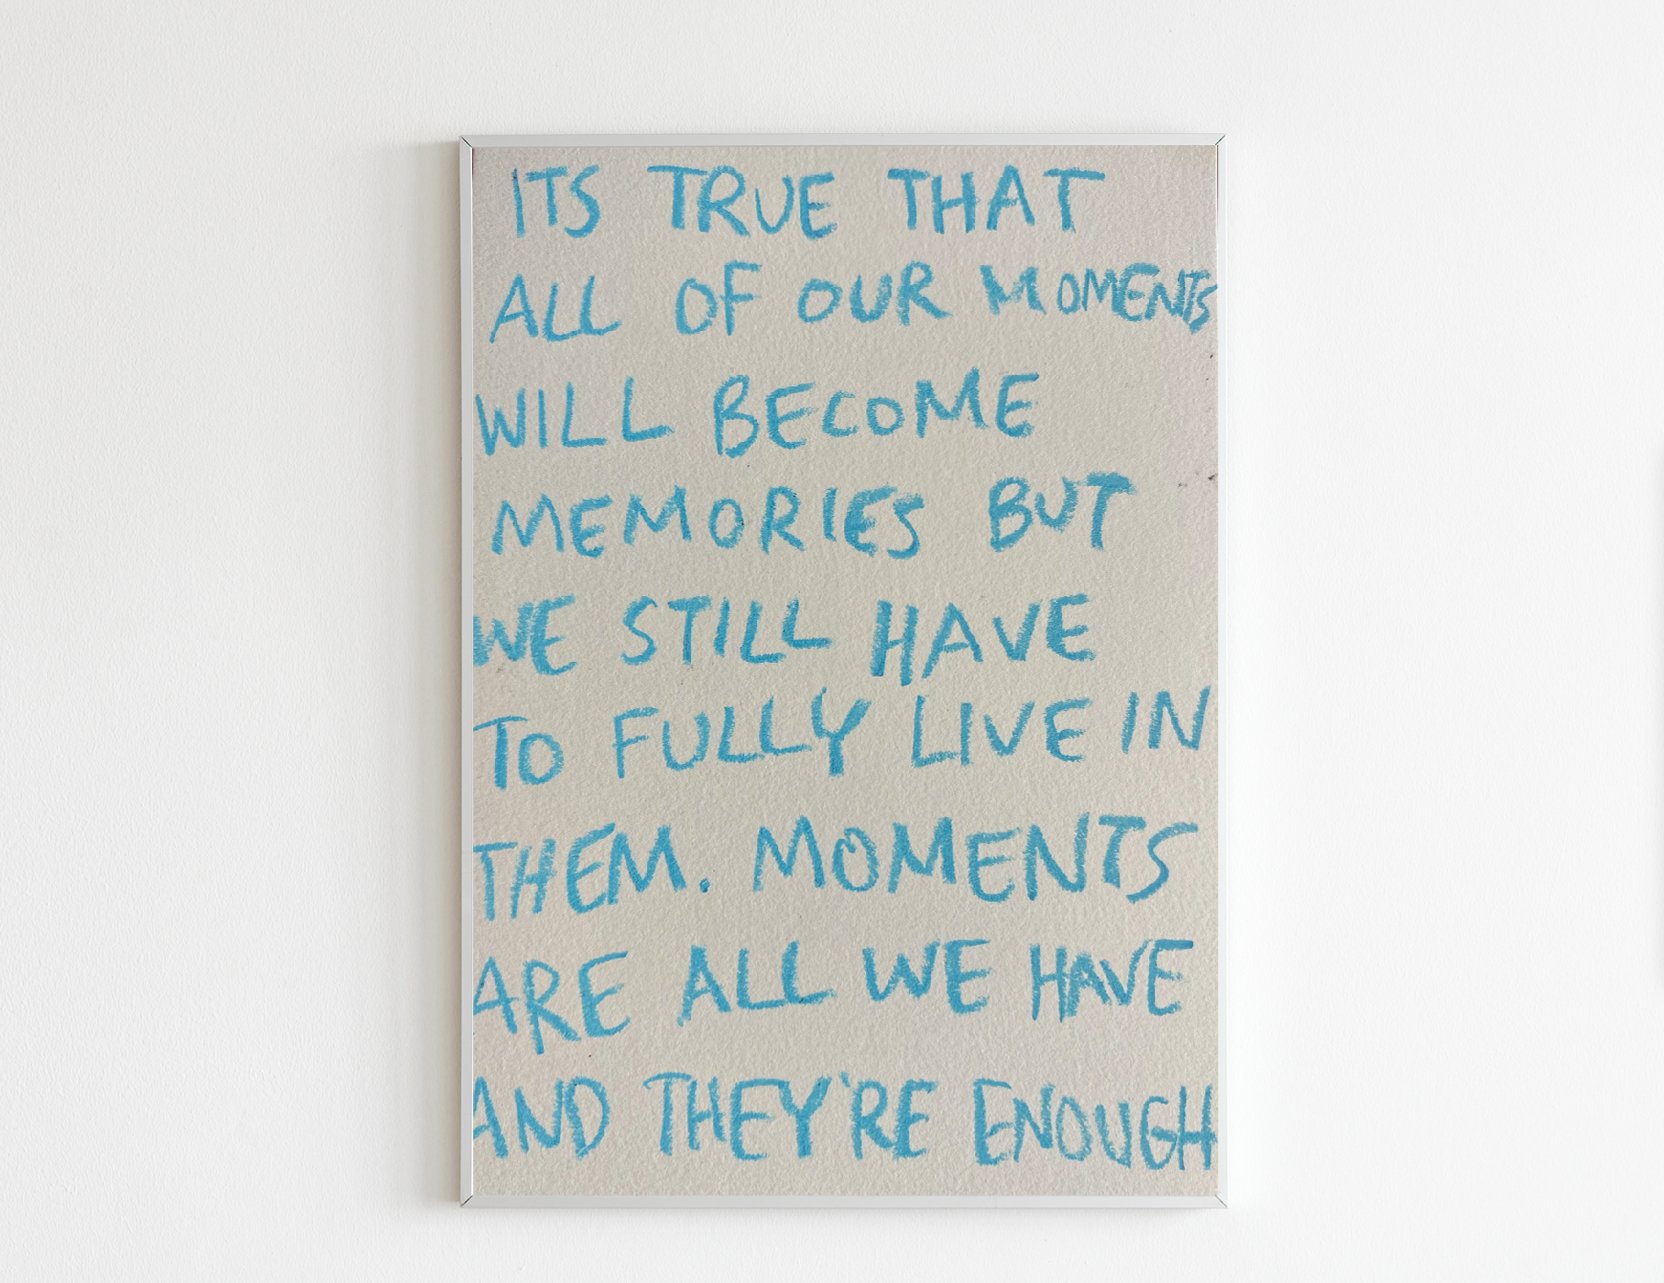 ITS TRUE THAT
ALL OF OUR MOMENTS
WILL BECOME
MEMORIES BUT
WE STILL HAVE
TO FULLY LIVE IN
THEM. MOMENTS
ARE ALL WE HAVE
AND THEY'RE ENOUGH